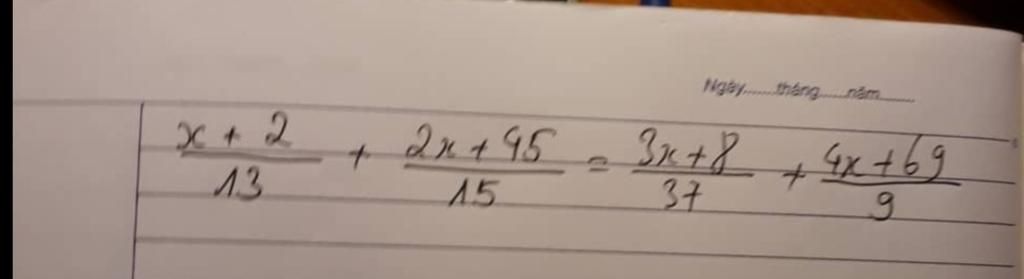 Ngày.......tháng......năm........
x + 2/13 + 2x + 45/15 = 3x + 8/37 + 4x + 69/9